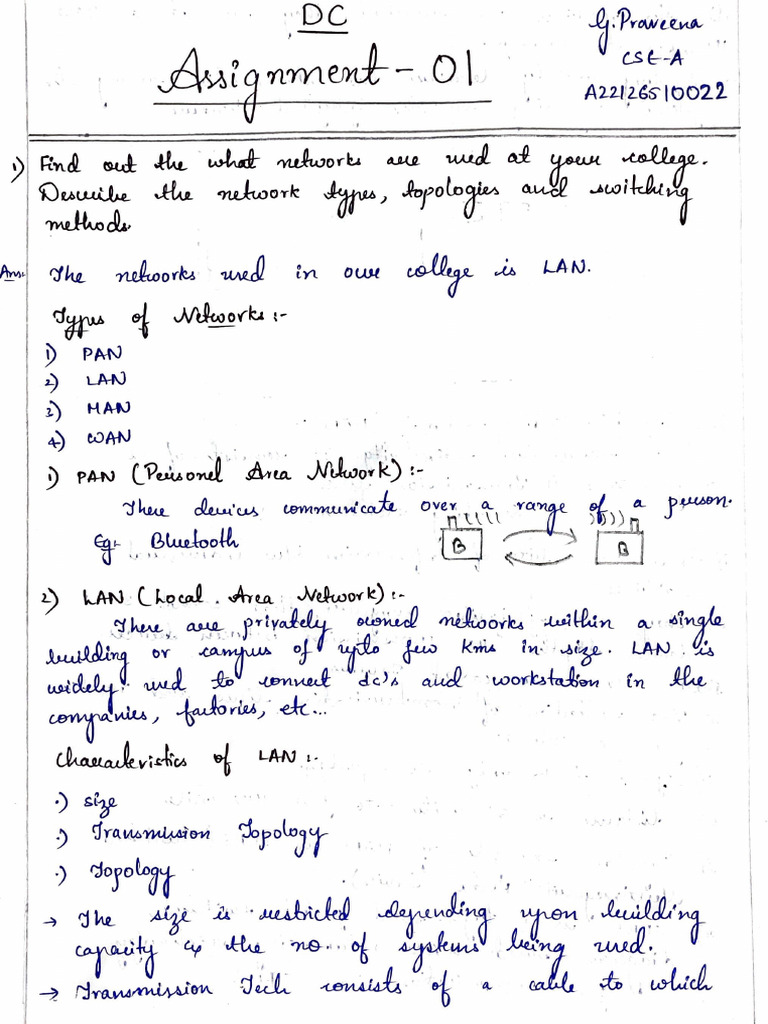 DC
Assignment - 01
G. Praveena
CSE-A
A22126510022
1) Find out the what networks are used at your college.
Describe the network types, topologies and switching
methods.
Ans: The networks used in our college is LAN.
Types of Networks :-
1) PAN
2) LAN
3) MAN
4) WAN
1) PAN (Personel Area Network) :-
These devices communicate over a range of a person.
Eg:- Bluetooth
B
B
2) LAN (Local Area Network) :-
There are privately owned networks within a single
building or campus of upto few Kms in size. LAN is
widely used to connect dc's and workstation in the
companies, factories, etc...
Characteristics of LAN :-
·) Size
·) Transmission Topology
·) Topology
→ The size is restricted depending upon building
capacity & the no. of systems being used.
→ Transmission Tech consists of a cable to which